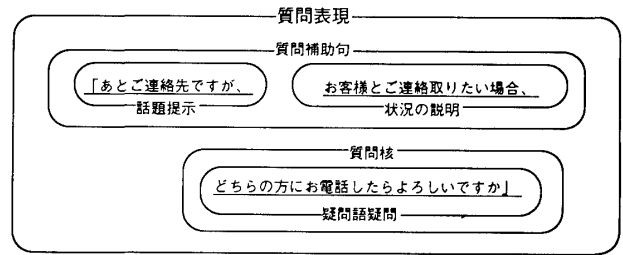 質問表現
質問補助句
「あとご連絡先ですが、
お客様とご連絡取りたい場合、
話題提示
状況の説明
質問核
どちらの方にお電話したらよろしいですか」
疑問語疑問